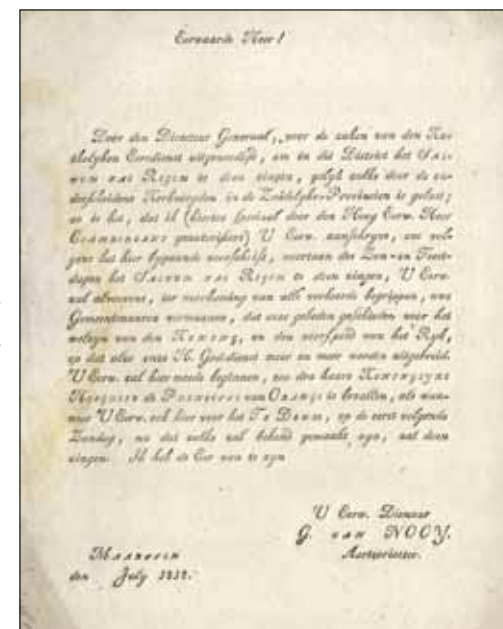 Eerwaarde Heer!
Door den Directeur Generaal, voor de zaken van den Ka-
tholyken Eeredienst uitgenoodigd, om in dit District het SAL-
VUM FAC REGEM te doen zingen, gelyk zulks door de on-
derscheidene Kerkvoogden in de Zuidelyke Provincien is gelast;
zo is het, dat ik (hiertoe speciaal door den Hoog Eerw. Heer
CIAMBERLANI geautoriseerd) U Eerw. aanschryve, om vol-
gens het hier bygaande voorschrift, voortaan des Zon- en Feest-
dagen het SALVUM FAC REGEM te doen zingen, U Eerw.
zal alvorens, ter voorkoming van alle verkeerde begrippen, uwe
Gemeentenaaren vermaanen, dat onze gebeden geschieden voor het
welzyn van den KONING, en den voorspoed van het Ryk,
op dat alles onze H. Godsdienst meer en meer worden uitgebreid.
U Eerw. zal hier mede beginnen, zoo dra haare KONINGLYKE
HOOGHEID de PRINSES van ORANJE is bevallen, als wan-
neer U Eerw. ook hier voor het Te Deum, op de eerst volgende
Zondag, na dat zulks zal bekend gemaakt zyn, zal doen
zingen. Ik heb de Eer van te zyn
U Eerw. Dienaar
G. van NOOY.
Aartspriester.
MAARSSEN
den July 1818.